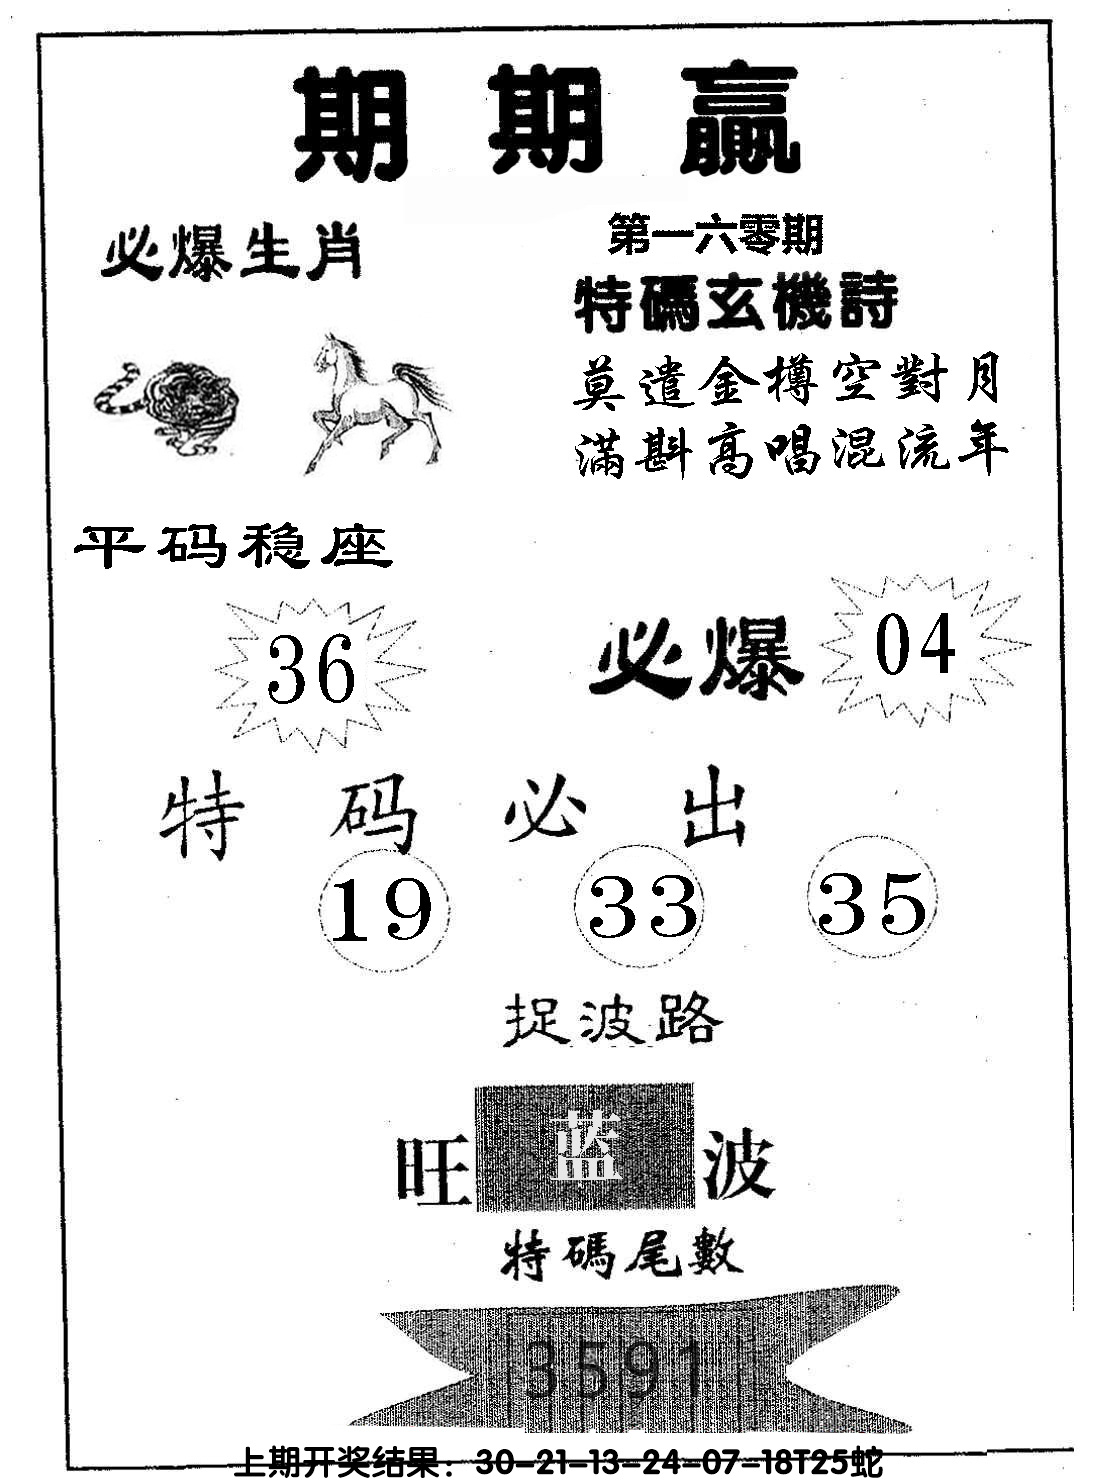 期期赢
必爆生肖
第一六零期
特碼玄機詩
莫遣金樽空對月
滿斟高唱混流年
平码稳座
36
必爆 04
特码必出
19 33 35
捉波路
旺 蓝 波
特碼尾數
3591
上期开奖结果：30-21-13-24-07-18T25蛇